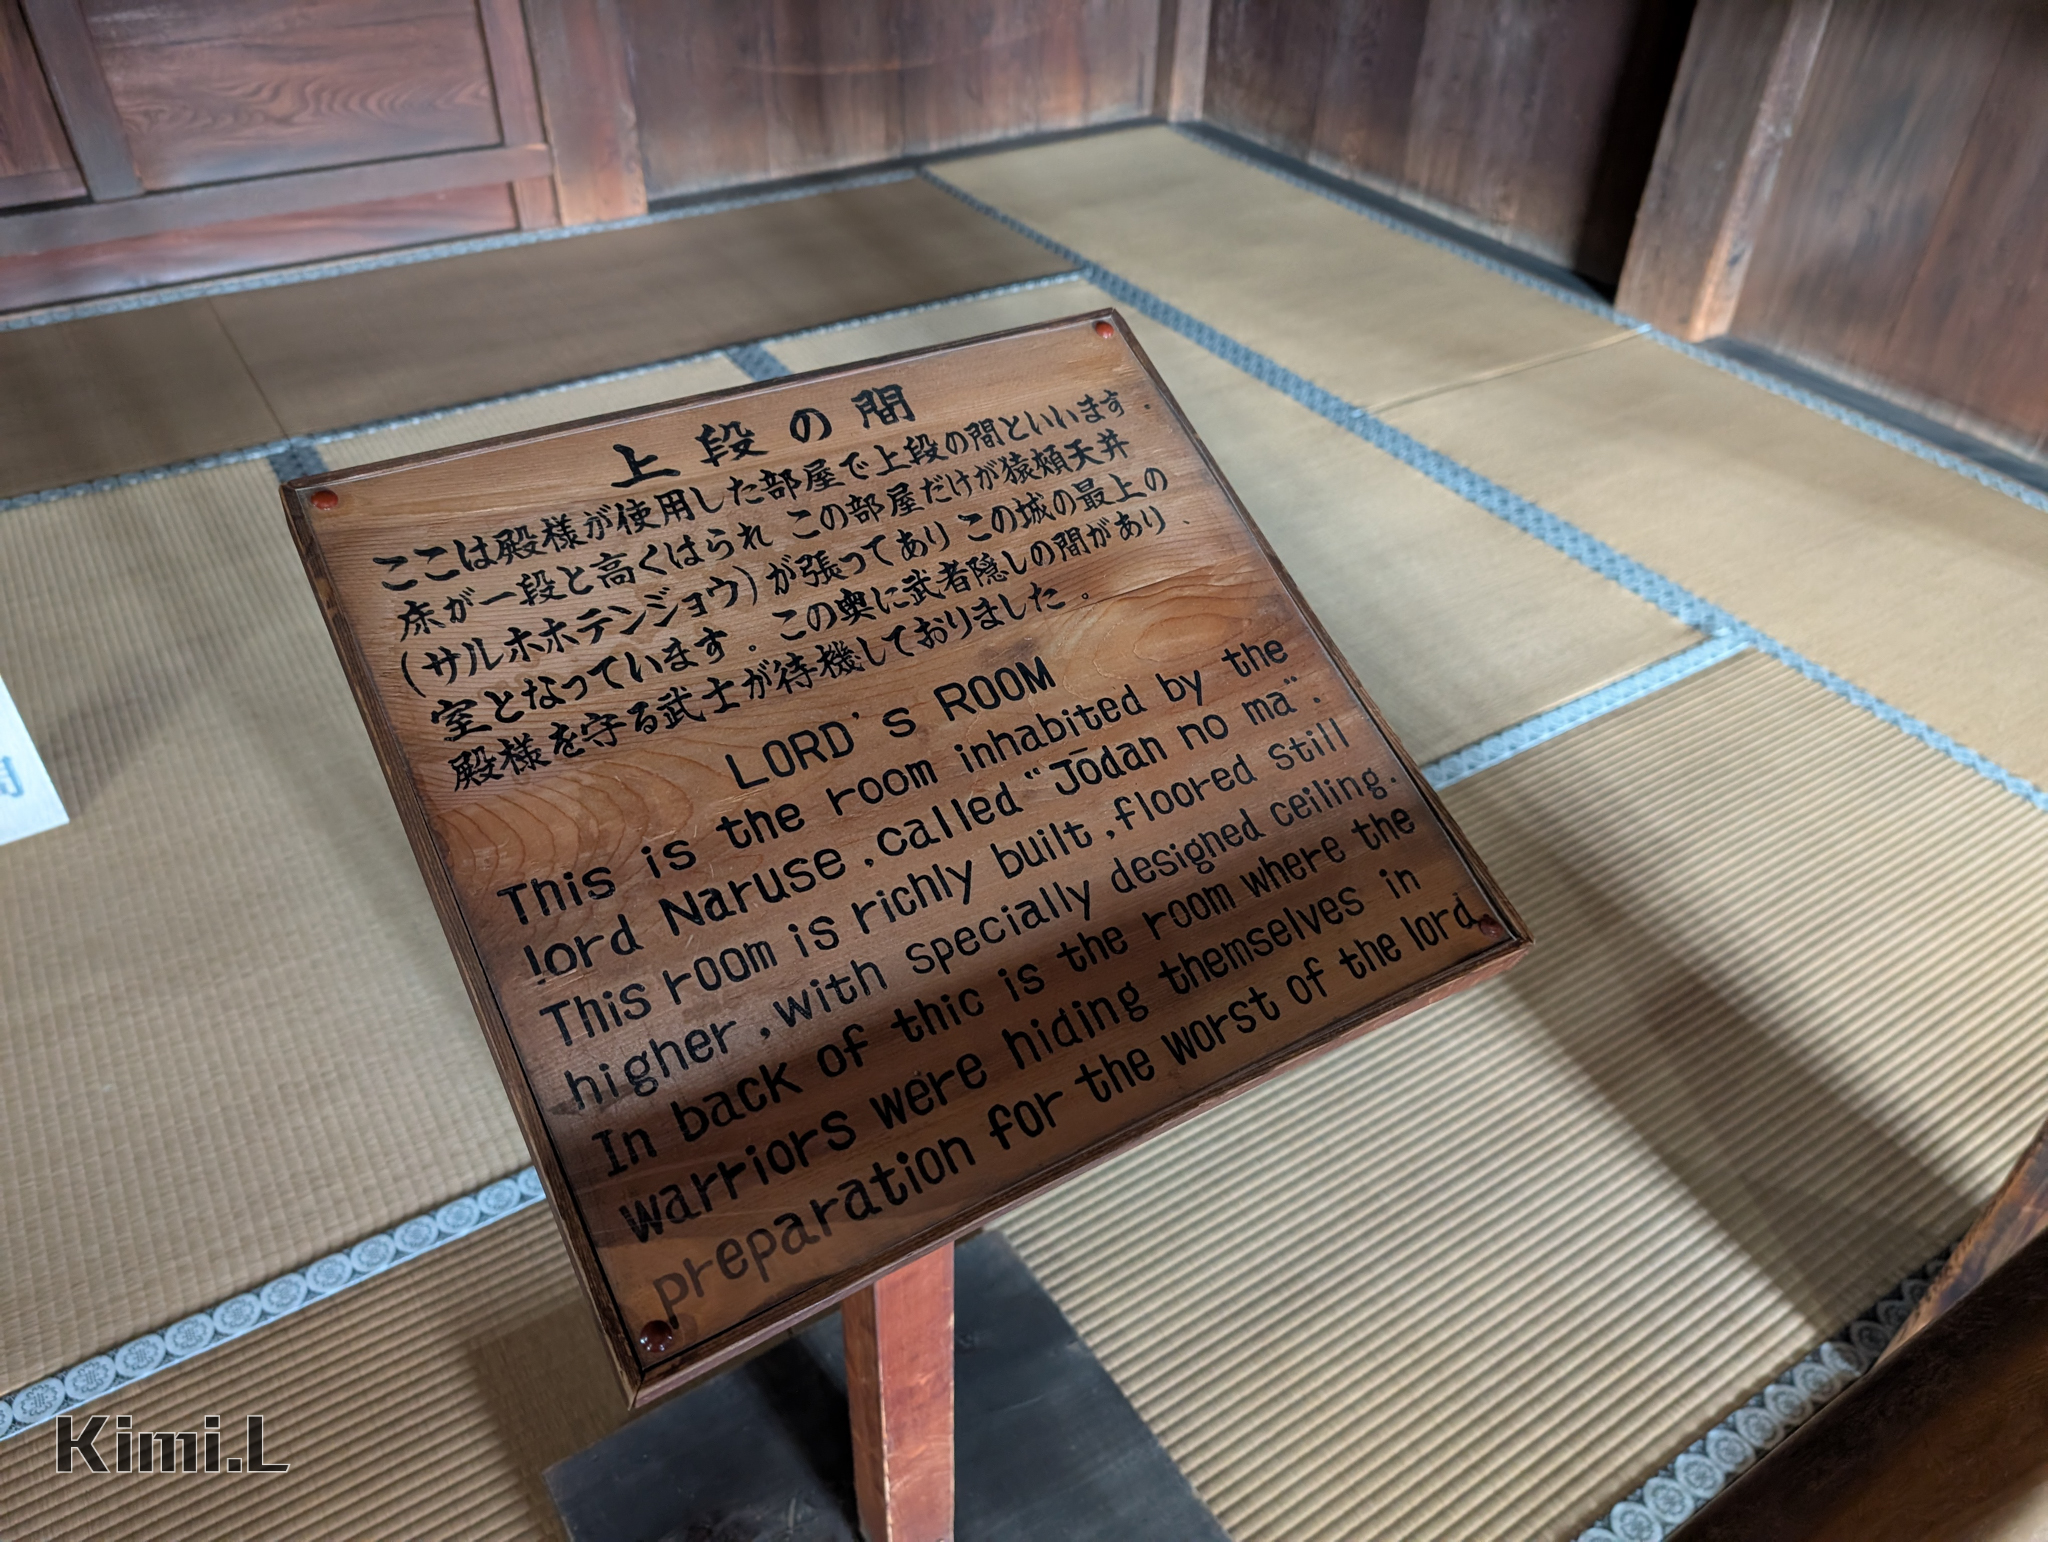 上段の間
ここは殿様が使用した部屋で上段の間といいます.
床が一段と高くはられ この部屋だけが猿頰天井
(サルホホテンジョウ)が張ってあり この城の最上の
室となっています. この奥に武者隠しの間があり.
殿様を守る武士が待機しておりました。
LORD's ROOM
This is the room inhabited by the
lord Naruse ,called "Jōdan no ma".
This room is richly built ,floored still
higher ,with specially designed ceiling.
In back of thic is the room where the
warriors were hiding themselves in
preparation for the worst of the lord.
間
Kimi.L